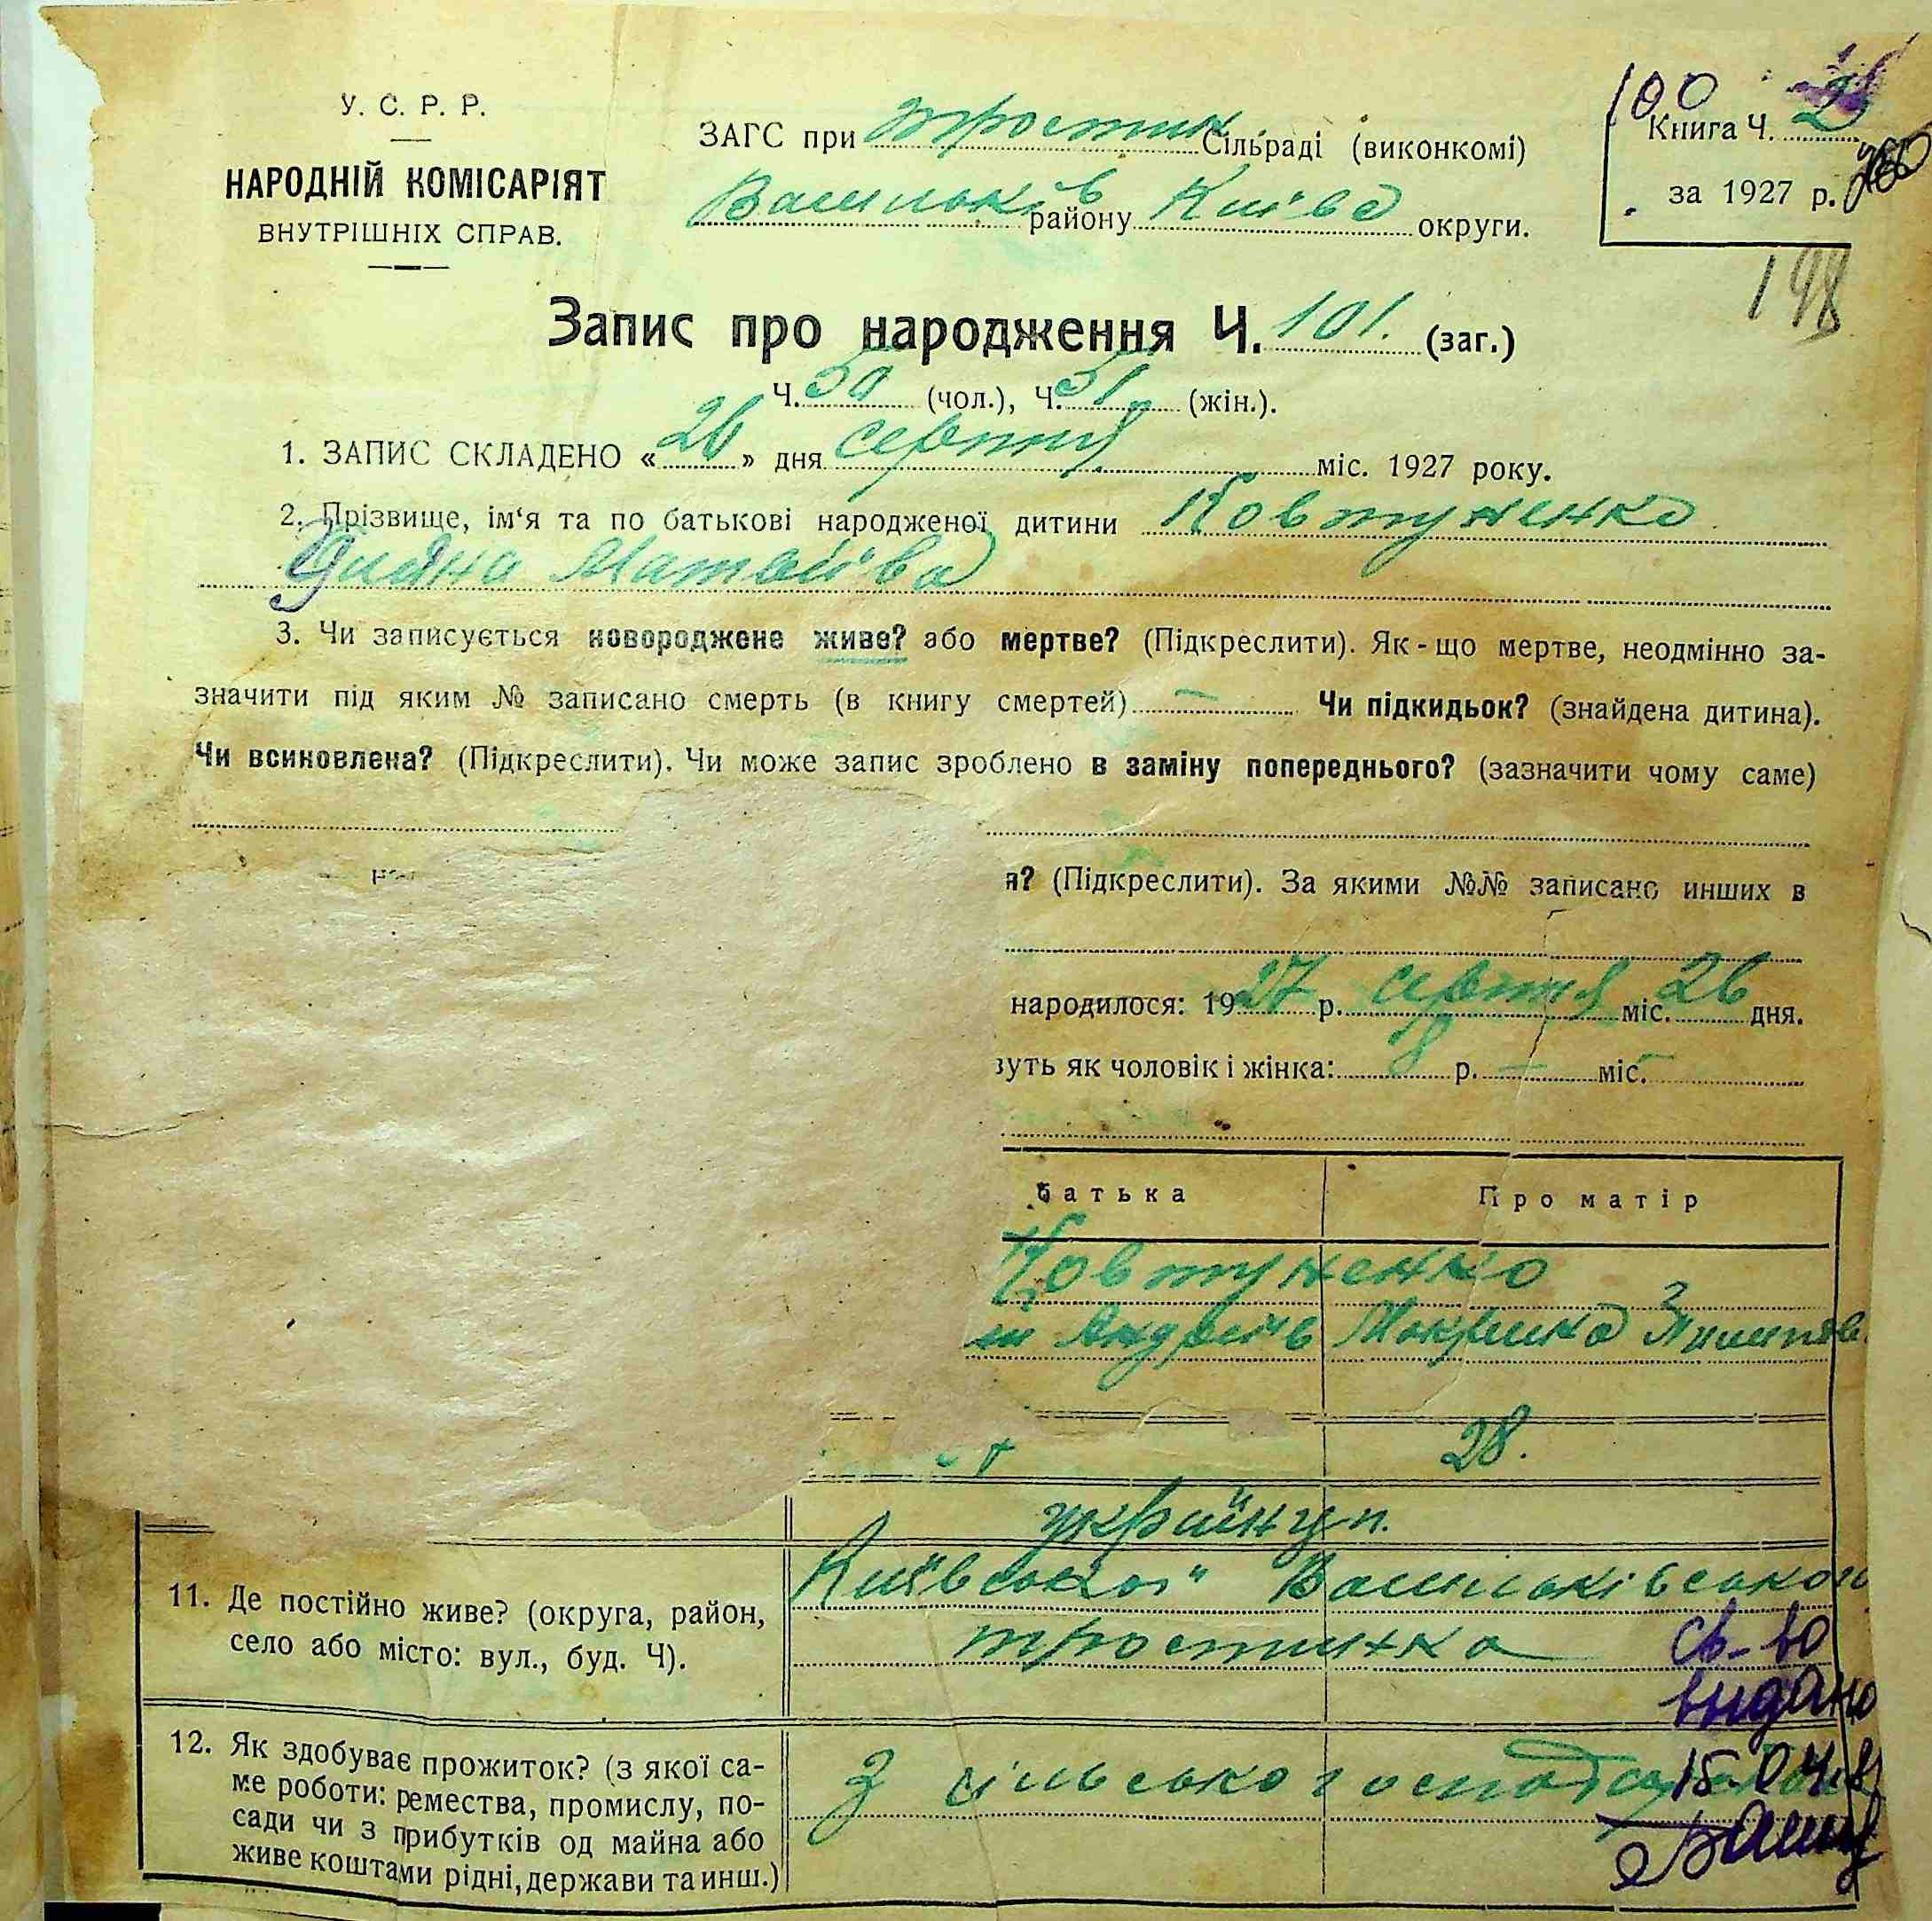 У. С. Р. Р.
НАРОДНІЙ КОМІСАРІЯТ
ВНУТРІШНІХ СПРАВ.
ЗАГС при Тростин Сільраді (виконкомі)
Васильків району Київа округи.
100
Книга Ч. 2
за 1927 р.
198
Запис про народження Ч. 101. (заг.)
Ч. 50 (чол.), Ч. 51 (жін.).
1. ЗАПИС СКЛАДЕНО «26» дня серпня міс. 1927 року.
2. Прізвище, ім'я та по батькові народженої дитини Ковтуненко
Матвіїва
3. Чи записується новороджене живе? або мертве? (Підкреслити). Як-що мертве, неодмінно за-
значити під яким № записано смерть (в книгу смертей) — Чи підкидьок? (знайдена дитина).
Чи всиновлена? (Підкреслити). Чи може запис зроблено в заміну попереднього? (зазначити чому саме)
я? (Підкреслити). За якими №№ записано инших в
народилося: 1927 р. серпня міс. 26 дня.
вуть як чоловік і жінка: 8 р. — міс.
батька Про матір
Ковтуненко
Андріїв Мокрина Пилипов
28.
українці.
11. Де постійно живе? (округа, район,
село або місто: вул., буд. Ч).
Київської Васильківсько
Тростинка
св-во
видано
12. Як здобуває прожиток? (з якої са-
ме роботи: ремества, промислу, по-
сади чи з прибутків од майна або
живе коштами рідні, держави та инш.)
З сільського
15.04